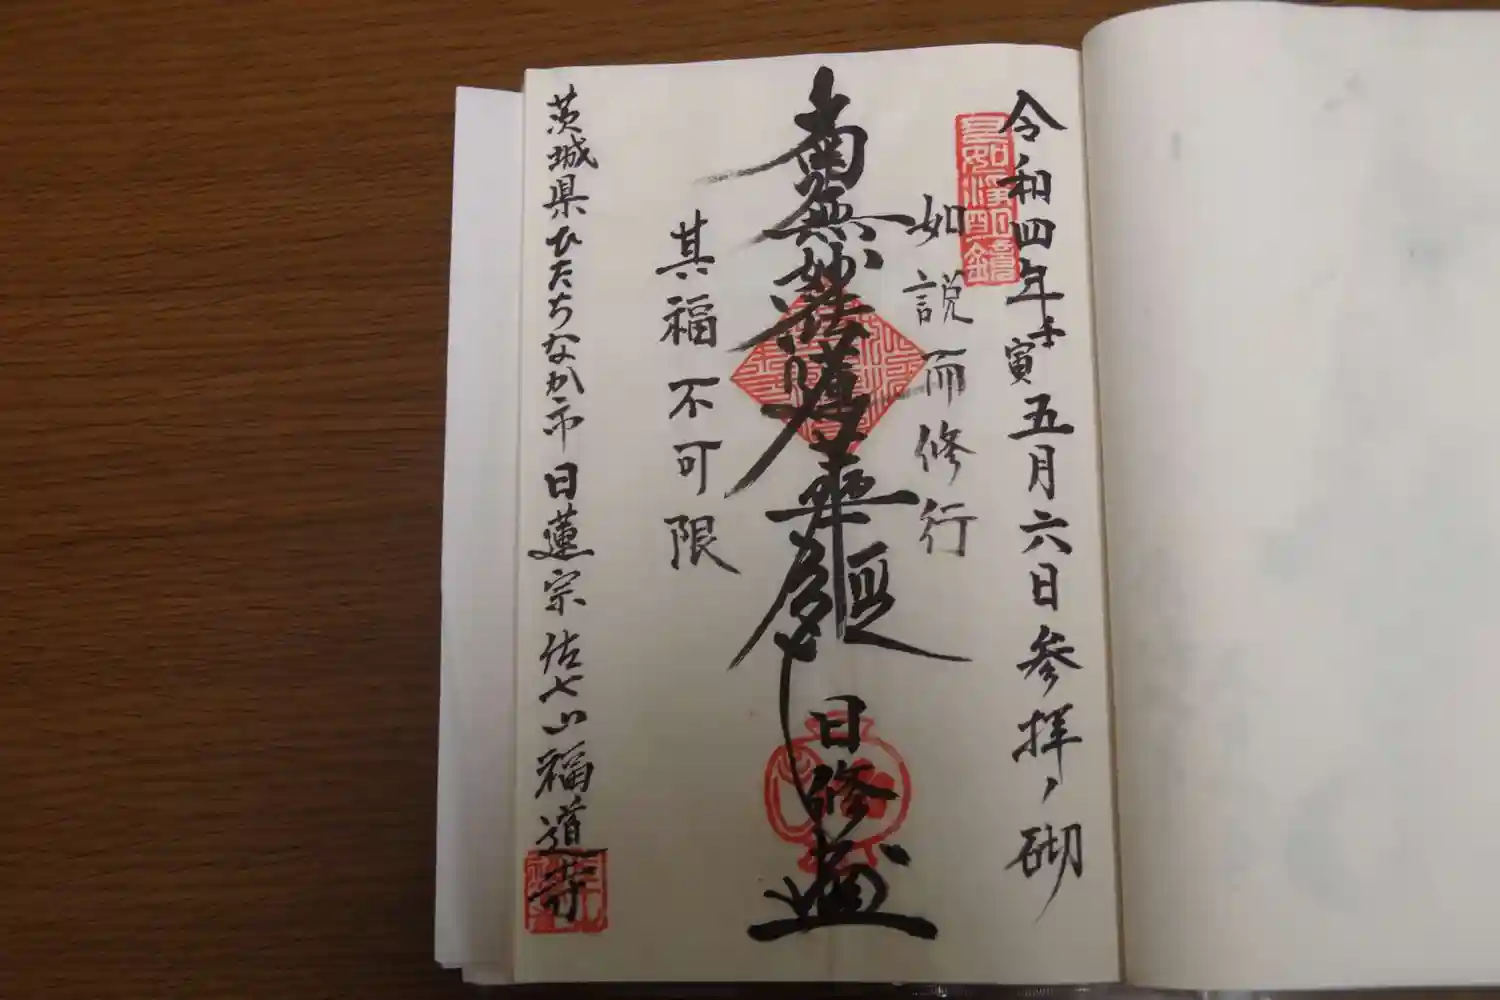 令和四年壬寅五月六日参拝ノ砌
如説而修行
南無妙法蓮華経
日修
其福不可限
茨城県ひたちなか市日蓮宗佐七山福道寺